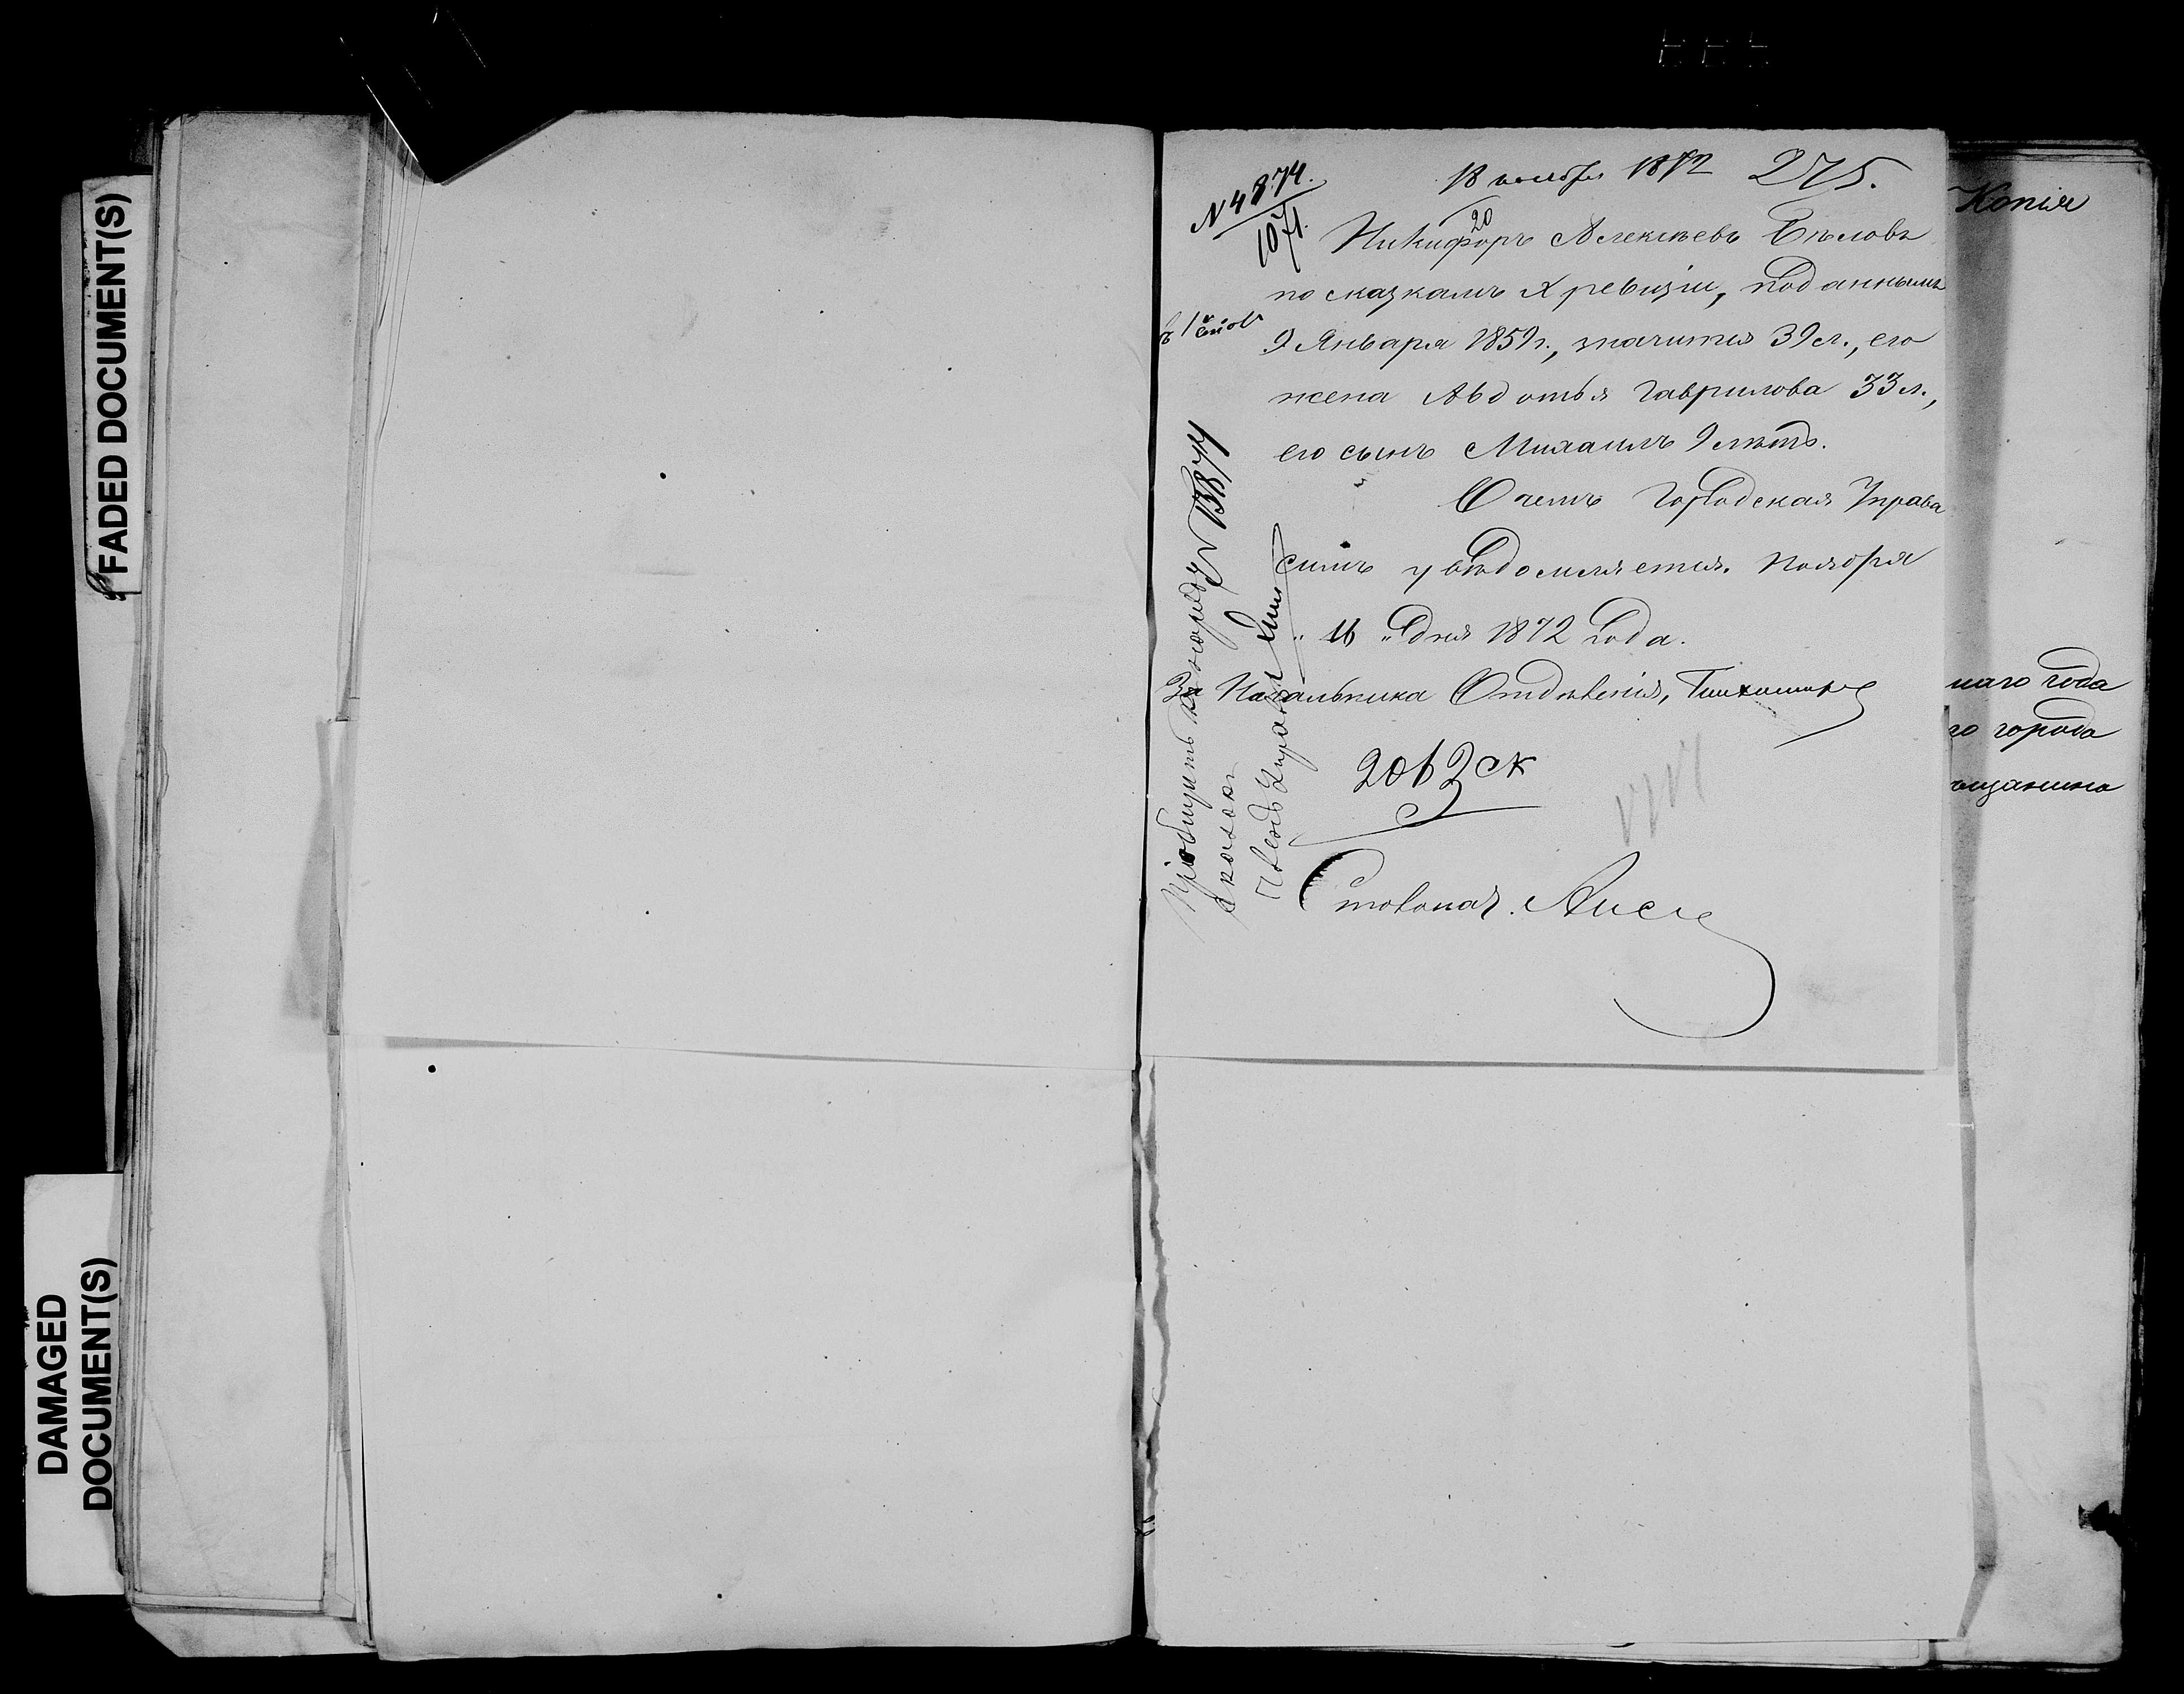 FADED DOCUMENT(S)
DAMAGED
DOCUMENT(S)
№ 4874.
1071.
18 ноября 1872 275.
20
Никифоръ Алексѣевъ Бѣловъ
по сказкамъ X ревизіи, поданнымъ
9 Января 1859 г., значится 39 л., его
жена Авдотья Гаврилова 33 л.,
его сынъ Михаилъ 9 лѣтъ.
О чемъ Городская Управа
симъ увѣдомляется. Ноября
"16" дня 1872 года.
За Начальника Отдѣленія,
Столонач.
Пріобщить къ
Членъ Управы
Копія
наго года
го города
ѣщанина